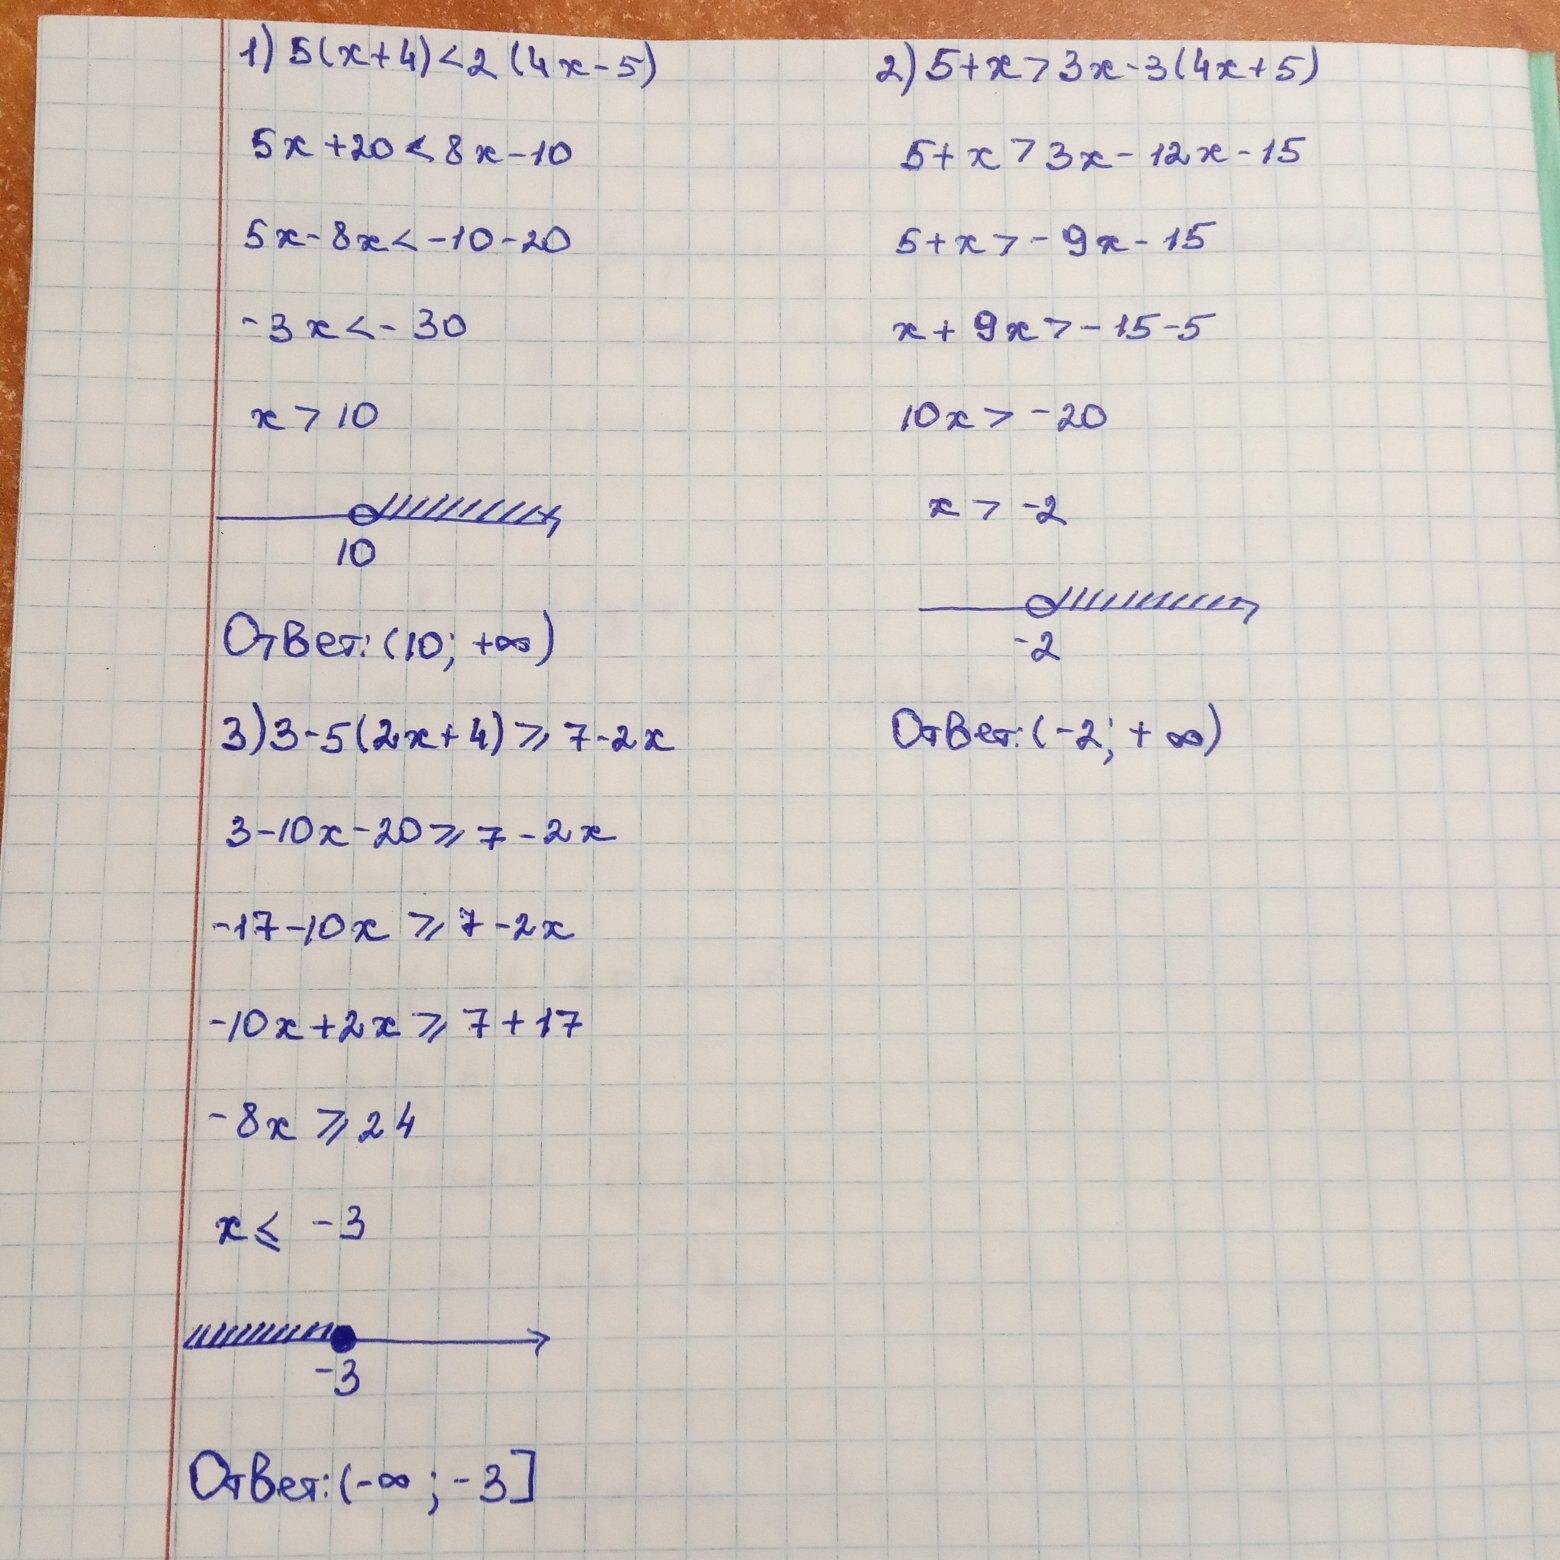 1) 5(x+4)<2(4x-5)
5x+20<8x-10
5x-8x<-10-20
-3x<-30
x>10
10
Ответ: (10; +∞)
2) 5+x>3x-3(4x+5)
5+x>3x-12x-15
5+x>-9x-15
x+9x>-15-5
10x>-20
x>-2
-2
Ответ: (-2; +∞)
3) 3-5(2x+4)⩾7-2x
3-10x-20⩾7-2x
-17-10x⩾7-2x
-10x+2x⩾7+17
-8x⩾24
x⩽-3
-3
Ответ: (-∞; -3]